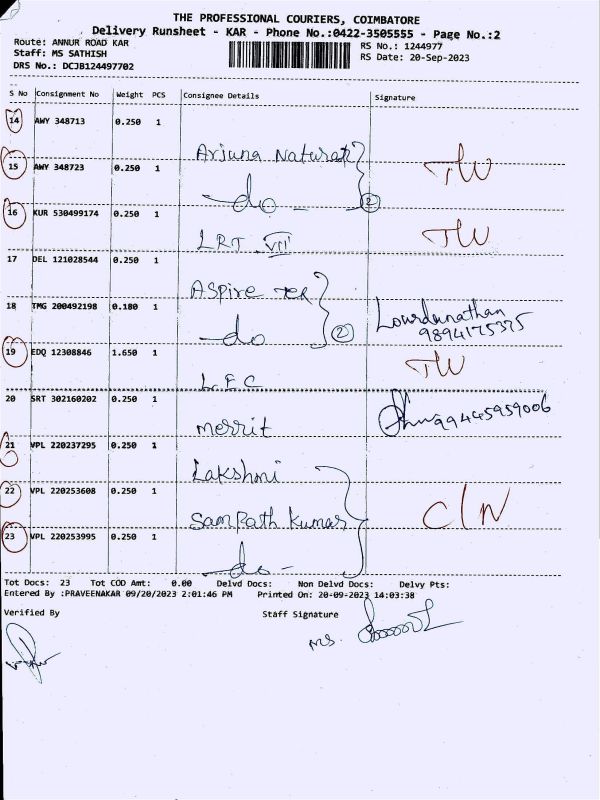 THE PROFESSIONAL COURIERS, COIMBATORE
Delivery Runsheet - KAR - Phone No.:0422-3505555 - Page No.:2
Route: ANNUR ROAD KAR
Staff: MS SATHISH
DRS No.: DCJB124497702
RS No.: 1244977
RS Date: 20-Sep-2023
S No Consignment No Weight PCS Consignee Details Signature
14 AWY 348713 0.250 1 Arjuna Natural
15 AWY 348723 0.250 1 do - 2 TW
16 KUR 530499174 0.250 1 LRT VII TW
17 DEL 121028544 0.250 1 Aspire Tex
18 TMG 200492198 0.180 1 do 2 Lourdunathan 9894175375
19 EDQ 12308846 1.650 1 L.E.C TW
20 SRT 302160202 0.250 1 merrit 99445959006
21 VPL 220237295 0.250 1 Lakshmi
22 VPL 220253608 0.250 1 Sampath Kumar C/N
23 VPL 220253995 0.250 1 do -
Tot Docs: 23 Tot COD Amt: 0.00 Delvd Docs: Non Delvd Docs: Delvy Pts:
Entered By :PRAVEENAKAR 09/20/2023 2:01:46 PM Printed On: 20-09-2023 14:03:38
Verified By Staff Signature
MS.